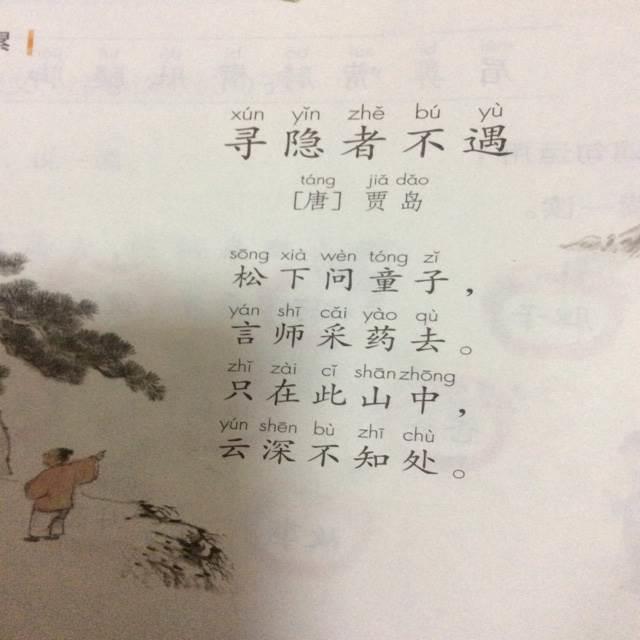 累
xún yǐn zhě bú yù
寻隐者不遇
táng jiǎ dǎo
[唐] 贾岛
sōng xià wèn tóng zǐ
松下问童子，
yán shī cǎi yào qù
言师采药去。
zhǐ zài cǐ shān zhōng
只在此山中，
yún shēn bù zhī chù
云深不知处。